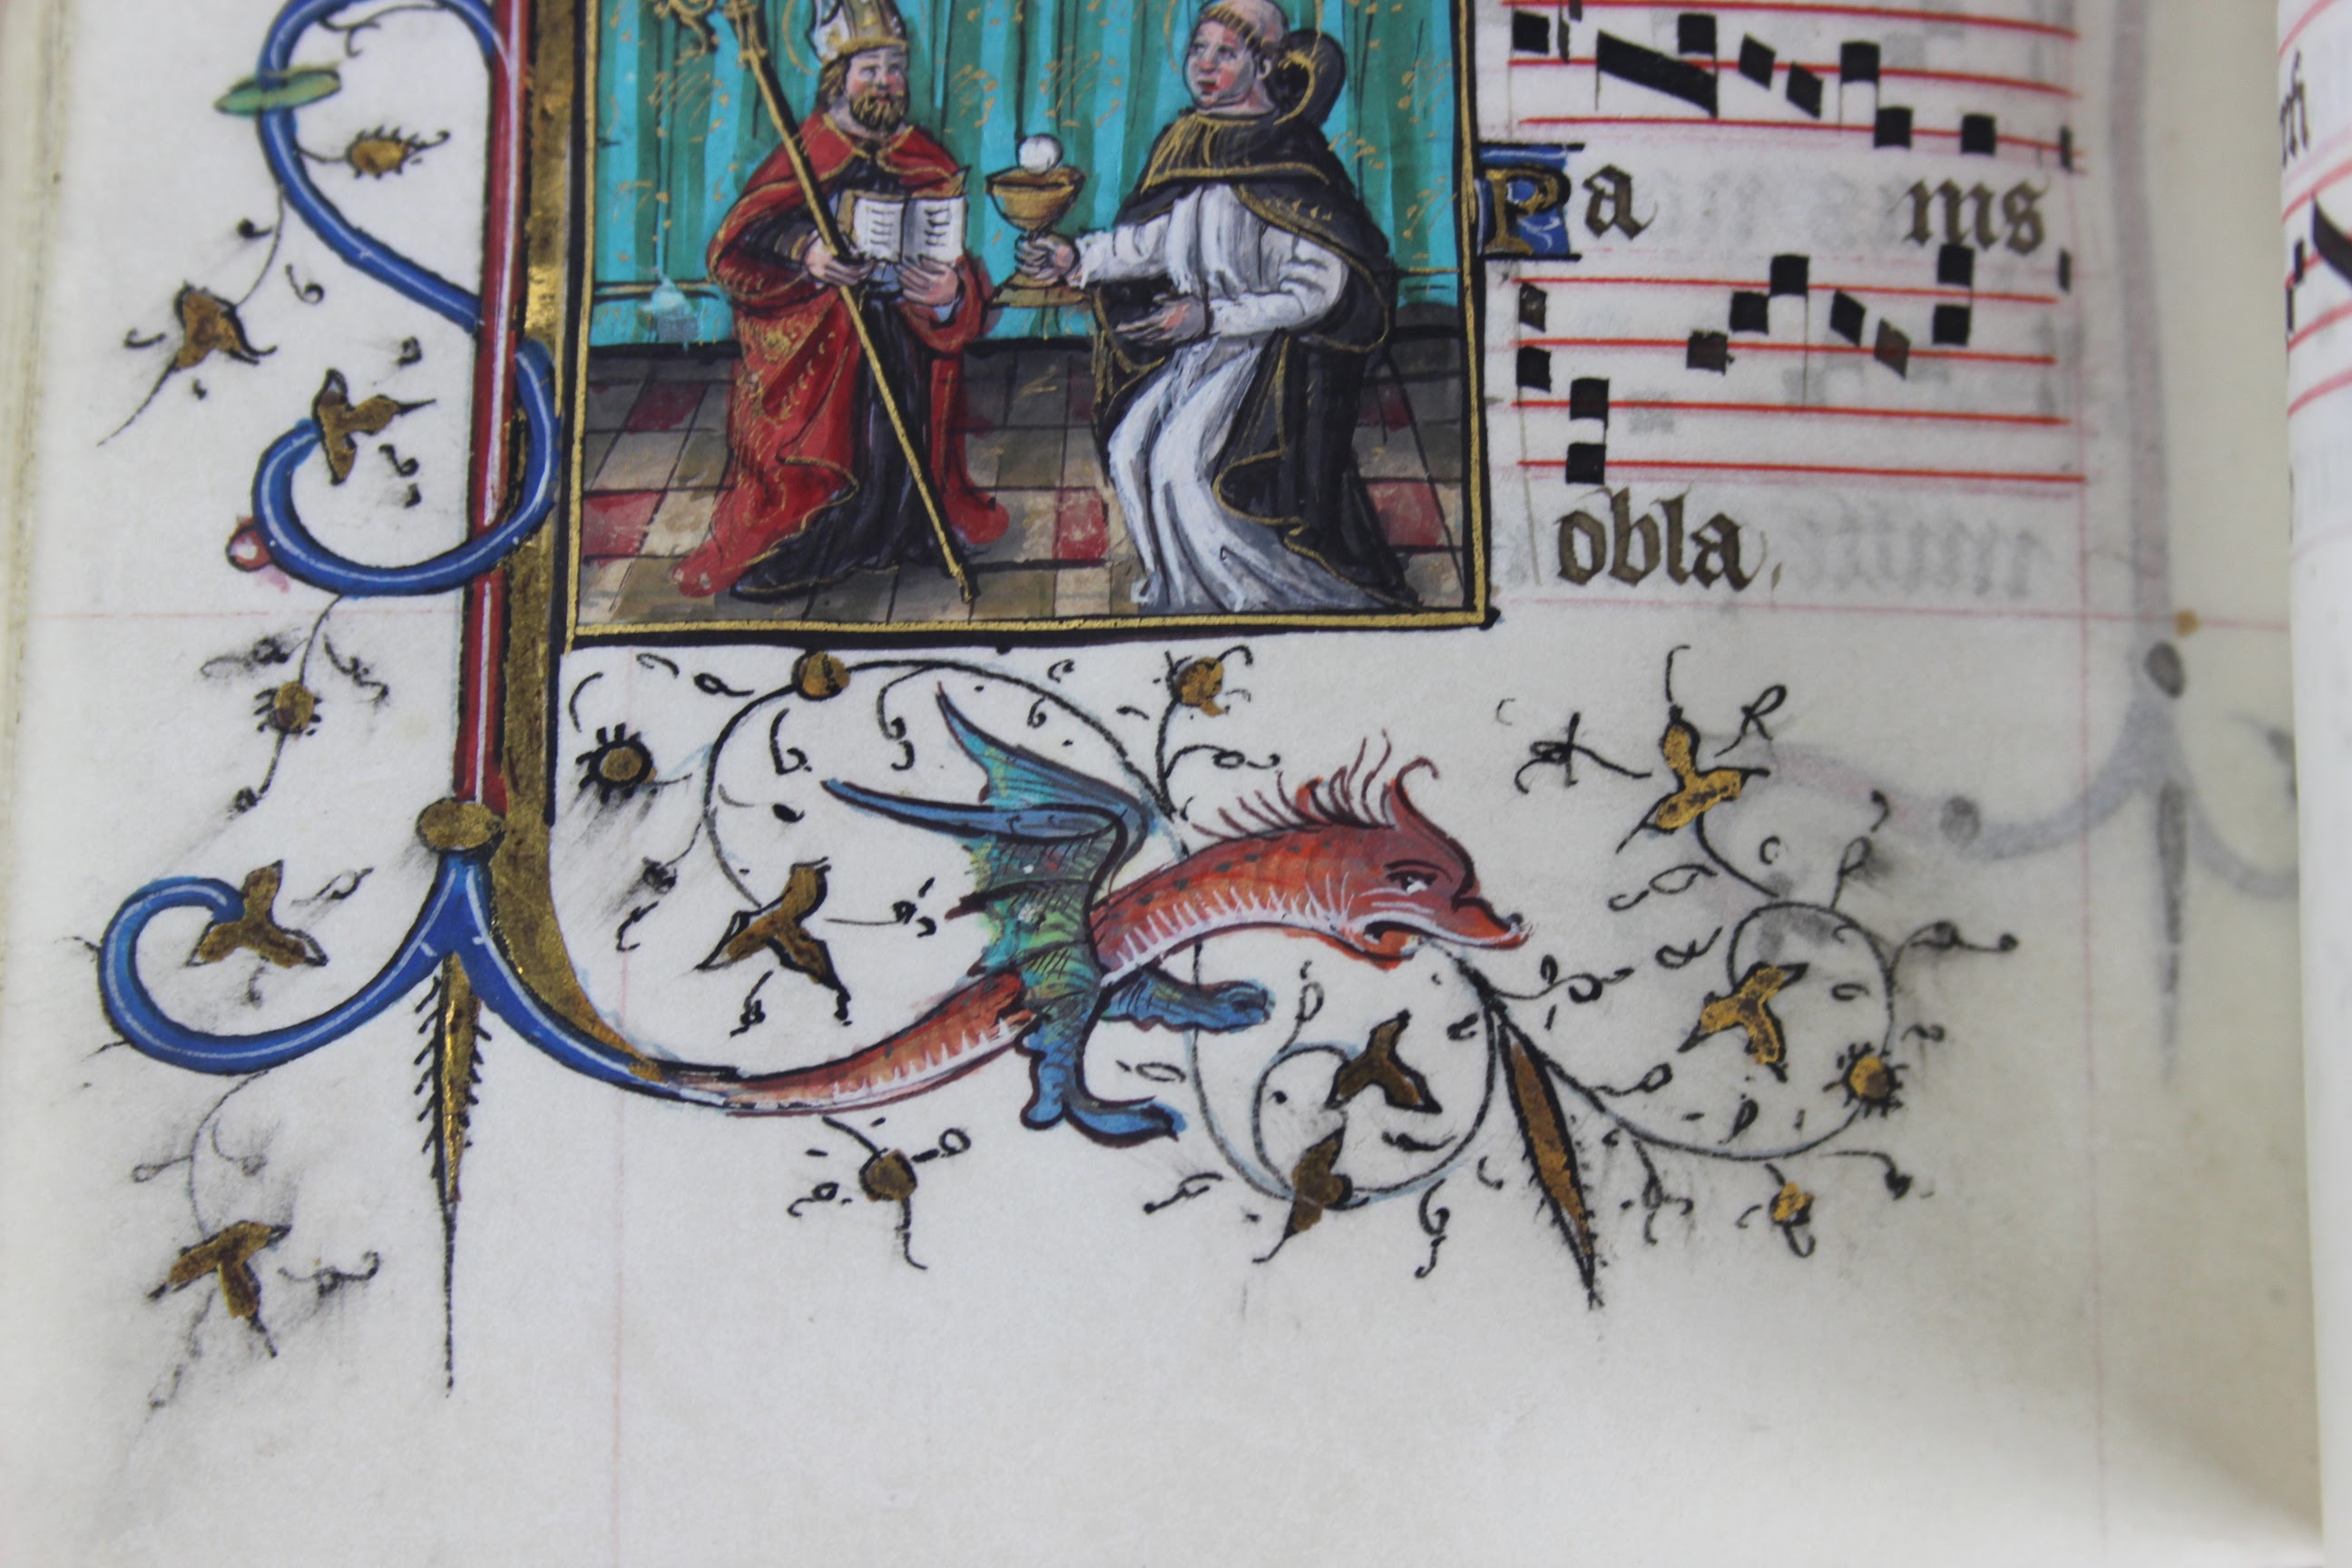 Pa nis
obla